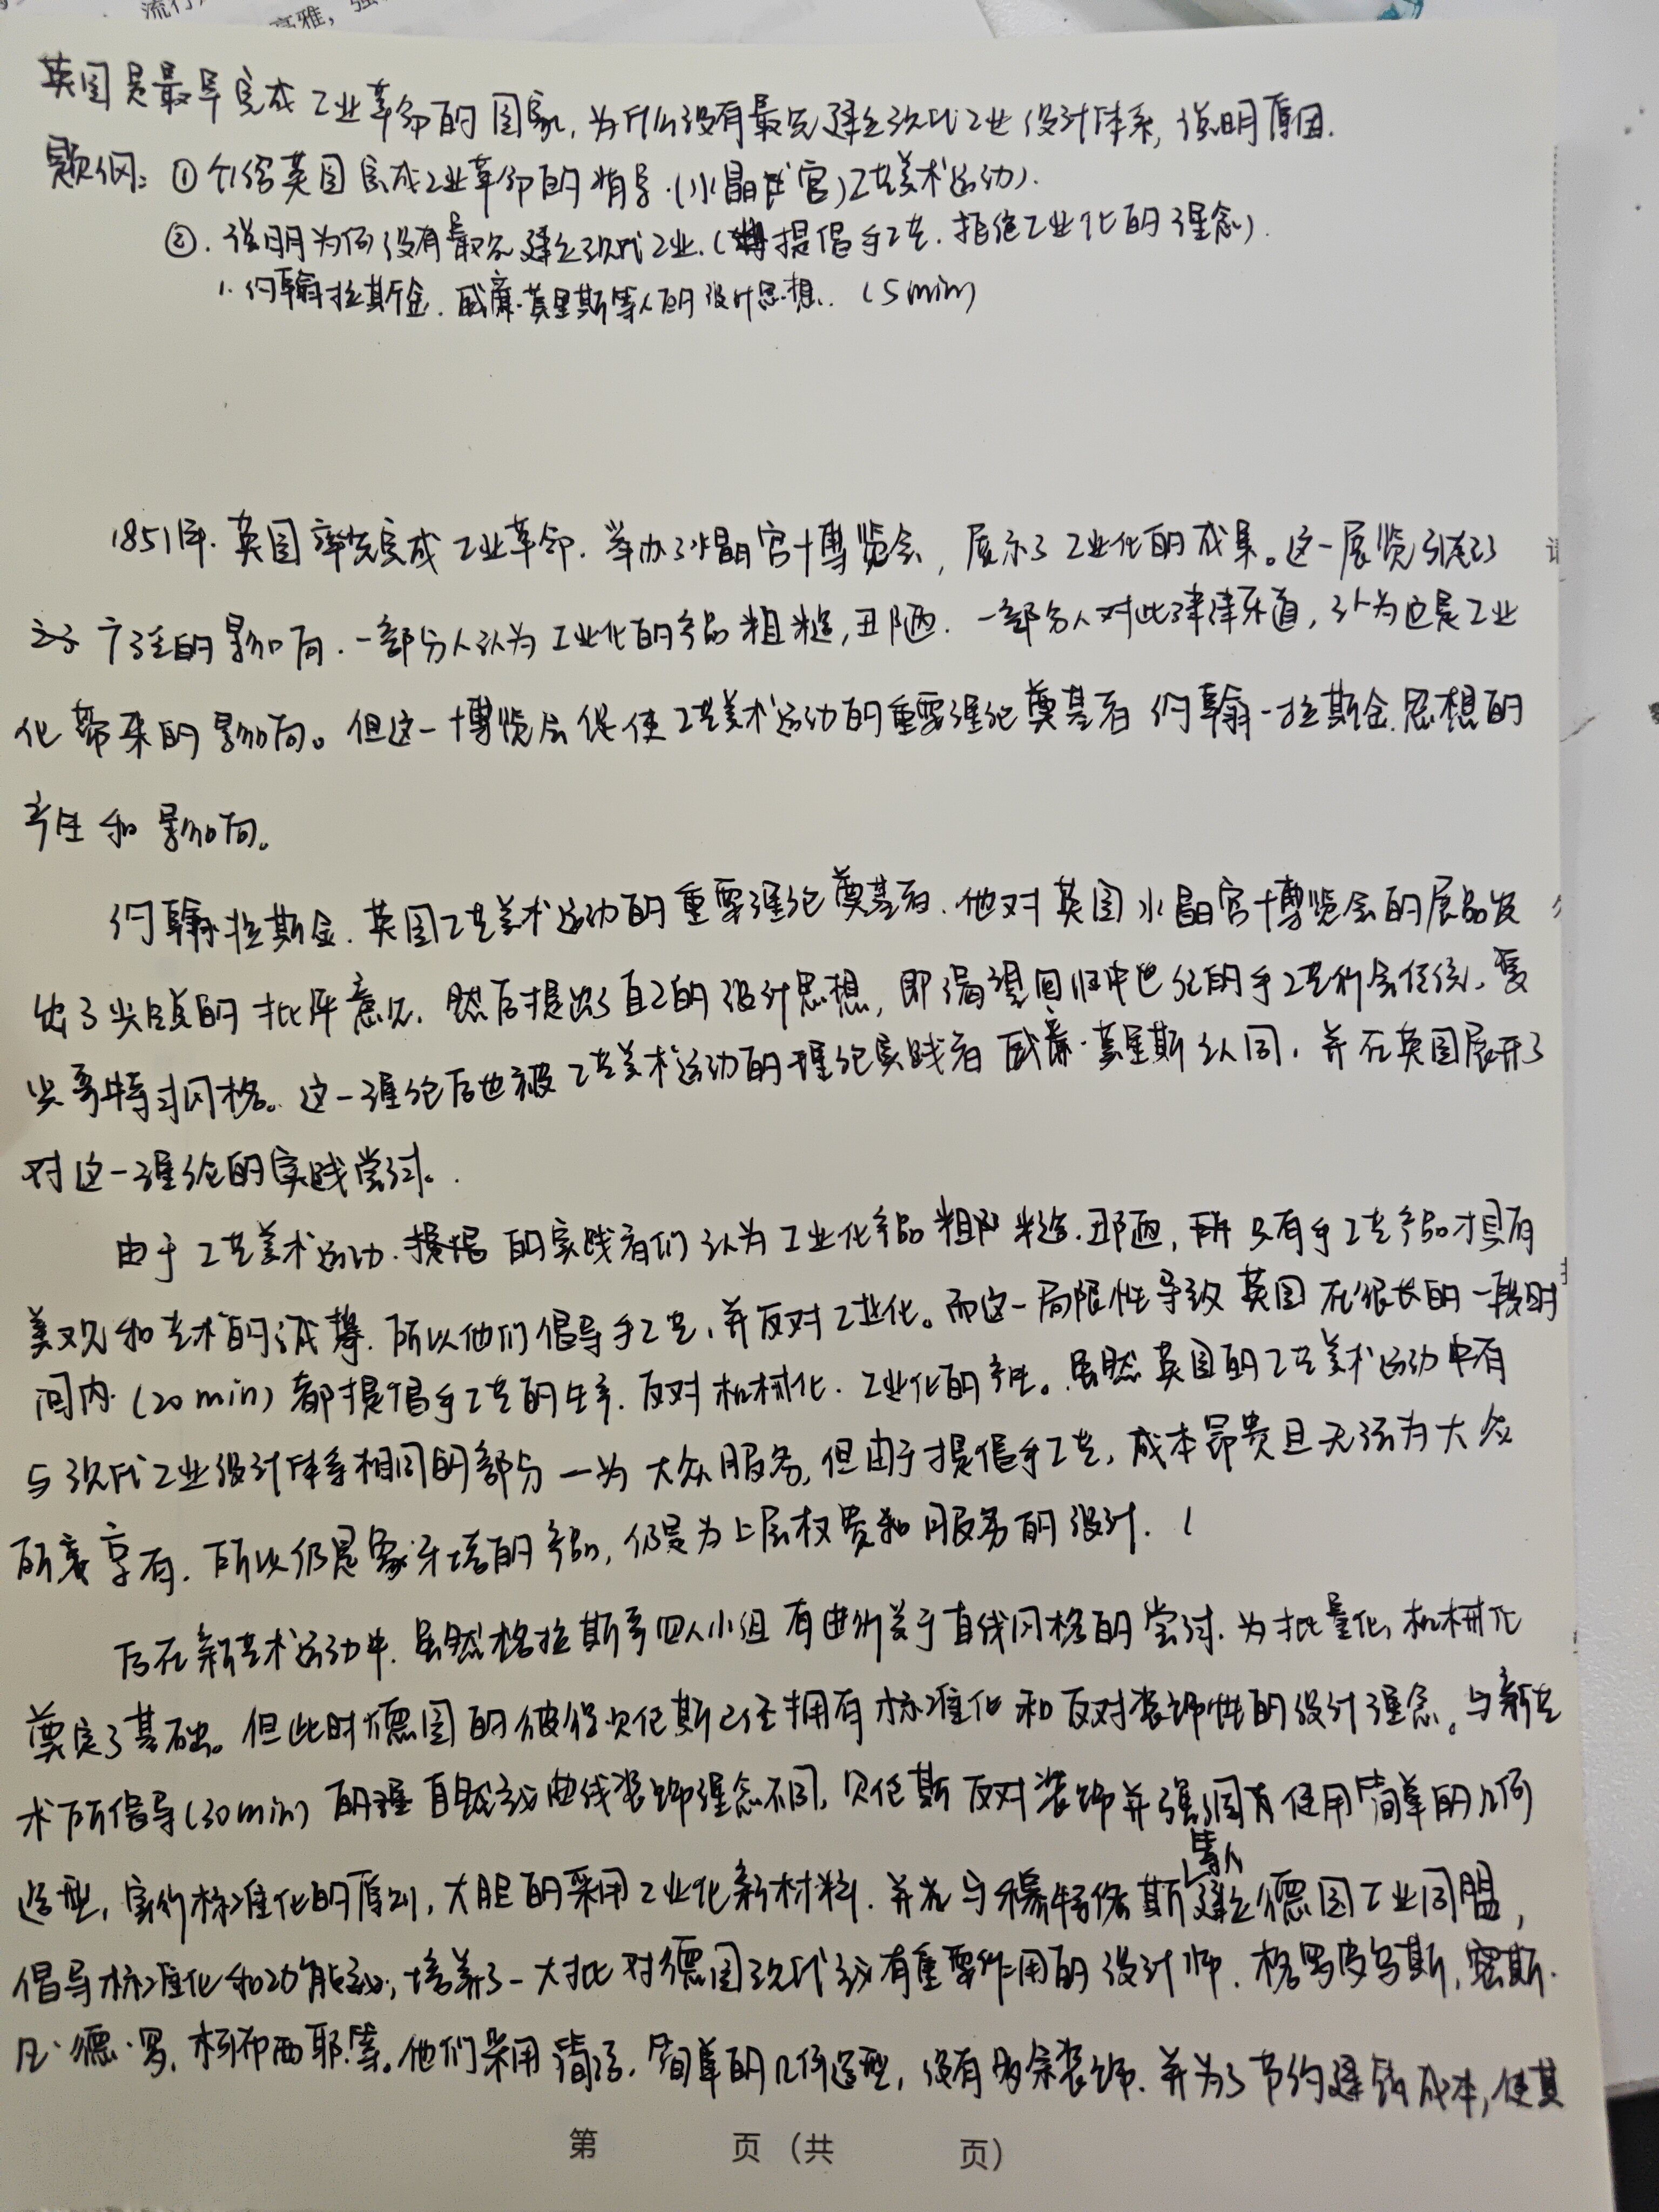 流行
高雅，强
英国是最早完成工业革命的国家，为什么没有最先建立现代工业设计体系，说明原因.
题纲：①介绍英国完成工业革命的背景.(水晶宫)工艺美术运动).
②.说明为何没有最先建立现代工业.(提倡手工艺.拒绝工业化的理念).
1.约翰拉斯金.威廉·莫里斯等人的设计思想.(5min)
1851年.英国率先完成工业革命.举办了水晶宫博览会,展示了工业化的成果。这一展览引起了
广泛的影响.一部分人认为工业化的产品粗糙,丑陋.一部分人对此津津乐道,认为这是工业
化带来的影响。但这一博览会促使工艺美术运动的重要理论奠基者约翰-拉斯金.思想的
产生和影响。
约翰拉斯金.英国工艺美术运动的重要理论奠基者.他对英国水晶宫博览会的展品发
出了尖锐的批评意见.然后提出了自己的设计思想,即渴望回归中世纪的手工艺行会传统.复
兴哥特式风格。这一理论后也被工艺美术运动的理论实践者威廉·莫里斯认同.并在英国展开了
对这一理论的实践尝试。.
由于工艺美术运动.的实践者们认为工业化产品粗糙.丑陋,只有手工艺产品才具有
美观和艺术的诚挚.所以他们倡导手工艺,并反对工业化。而这一局限性导致英国在很长的一段时
间内.(20min)都提倡手工艺的生产.反对机械化.工业化的产生。虽然英国的工艺美术运动中有
与现代工业设计体系相同的部分—为大众服务,但由于提倡手工艺,成本昂贵且无法为大众
所享有.所以仍是象牙塔的产品,仍是为上层权贵服务的设计.(
后在新艺术运动中.虽然格拉斯哥四人小组有进行关于直线风格的尝试.为批量化,机械化
奠定了基础。但此时德国的彼得贝伦斯已经拥有标准化和反对装饰性的设计理念。与新艺
术所倡导(30min)的自然主义曲线装饰理念不同,贝伦斯反对装饰并强调有使用简单的几何
造型,实行标准化的原则,大胆的采用工业化新材料.并与穆特修斯等人建立德国工业同盟,
倡导标准化和功能主义,培养了一大批对德国现代主义有重要作用的设计师.格罗皮乌斯,密斯.
凡·德·罗,柯布西耶.等。他们采用简洁.简单的几何造型,没有多余装饰.并为了节约建筑成本,使其
第 页(共 页)